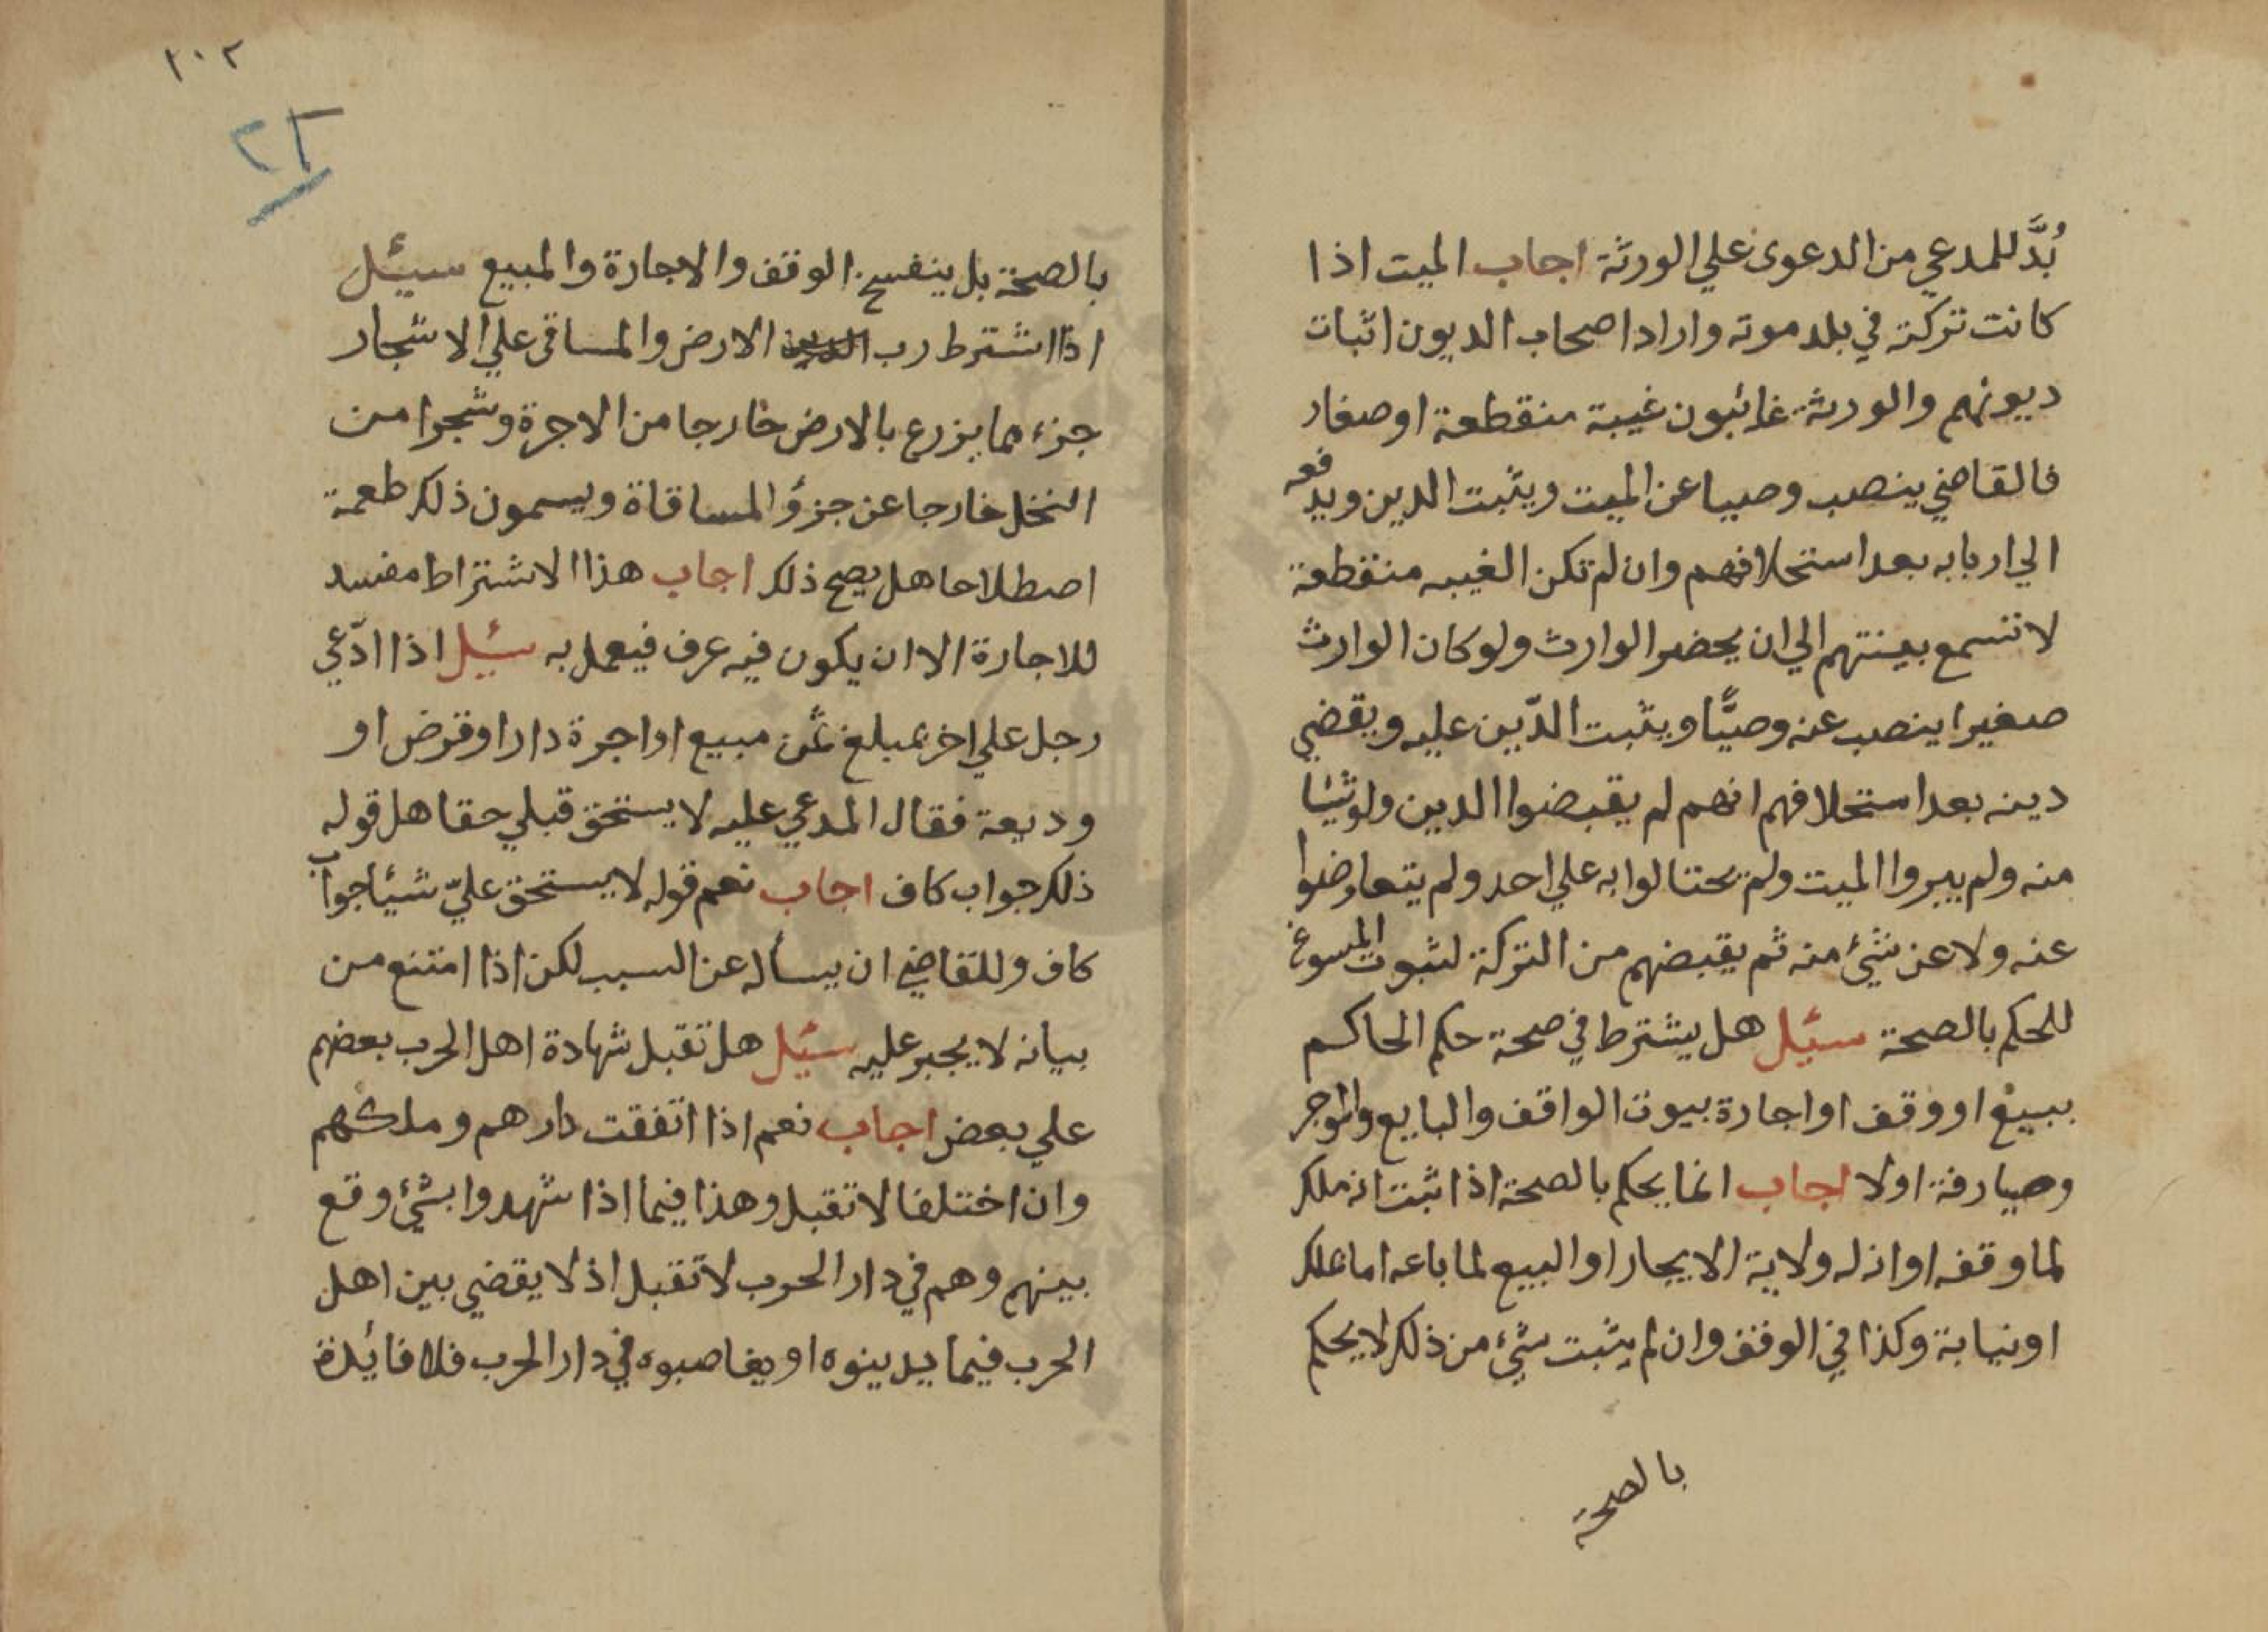 بُدَّ للمدعي من الدعوى علي الورثة اجاب الميت اذا
كانت تركته في بلد موته واراد اصحاب الديون اثبات
ديونهم والورثة غائبون غيبة منقطعة او صغار
فالقاضي ينصب وصيا عن الميت ويثبت الدين ويدفعه
الي اربابه بعد استحلافهم وان لم تكن الغيبه منقطعة
لا تسمع بينتهم الي ان يحضر الوارث ولو كان الوارث
صغيرا ينصب عنه وصيًّا ويثبت الدّين عليه ويقضي
دينه بعد استحلافهم انهم لم يقبضوا الدين ولو شيئا
منه ولم يبروا الميت ولم يحتالوا به علي احد ولم يتعاوضوا
عنه ولا عن شئ منه ثم يقبضهم من التركة لثبوت المسوغ
للحكم بالصحة سئل هل يشترط في صحة حكم الحاكم
ببيع او وقف او اجارة بيوت الواقف والبايع والموجر
وصيارفة اولا اجاب انما يحكم بالصحة اذا ثبت انه ملك
لما وقفه او ان له ولاية الايجار او البيع لما باعه اما بملك
او نيابة وكذا في الوقف وان لم يثبت شئ من ذلك لا يحكم
بالصحة
١٠٢
٢٢
بالصحة بل ينفسخ الوقف والاجارة والمبيع سيئل
اذا اشترط رب الارض والمساقى علي الاشجار
جزء مما يزرع بالارض خارجا من الاجرة وشجرا من
النخل خارجا عن جزؤ المساقاة ويسمون ذلك طعمة
اصطلاحا هل يصح ذلك اجاب هذا الاشتراط مفسد
للاجارة الا ان يكون فيه عرف فيعمل به سئل اذا ادّعي
رجل علي اخر بمبلغ ثمن مبيع او اجرة دار او قرض او
وديعة فقال المدعي عليه لا يستحق قبلي حقا هل قوله
ذلك جواب كاف اجاب نعم قوله لا يستحق عليّ شيئا جواب
كاف وللقاضي ان يسأله عن السبب لكن اذا امتنع من
بيانه لا يجبر عليه سئل هل تقبل شهادة اهل الحرب بعضهم
علي بعض اجاب نعم اذا اتفقت دارهم وملكهم
وان اختلفا لا تقبل وهذا فيما اذا شهدوا بشئ وقع
بينهم وهم في دار الحرب لا تقبل اذ لا يقضي بين اهل
الحرب فيما يدينوه او يغاصبوه في دار الحرب فلا فائدة